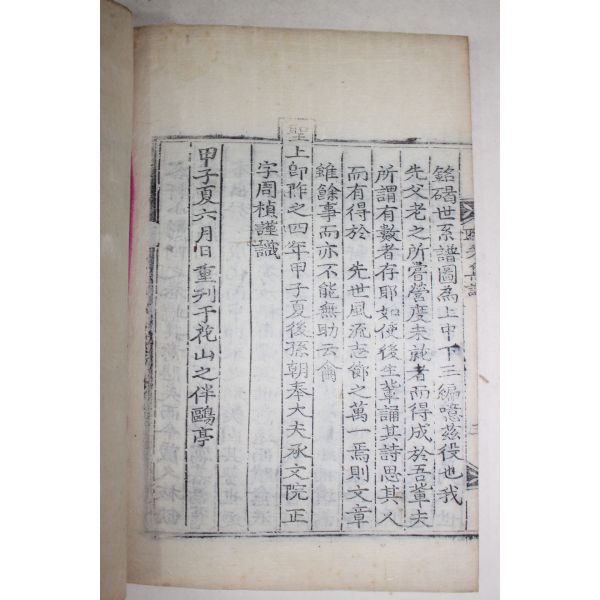 銘碣世系譜圖為上中下三編噫玆役也我
先父老之所嘗營度未就者而得成於吾輩夫
所謂有數者存耶如使後生輩誦其詩思其人
而有得於 先世風流志節之萬一焉則文章
雖餘事而亦不能無助云爾
聖上卽阼之四年甲子夏後孫朝奉大夫承文院正
字周楨謹識
甲子夏六月日重刊于花山之伴鷗亭